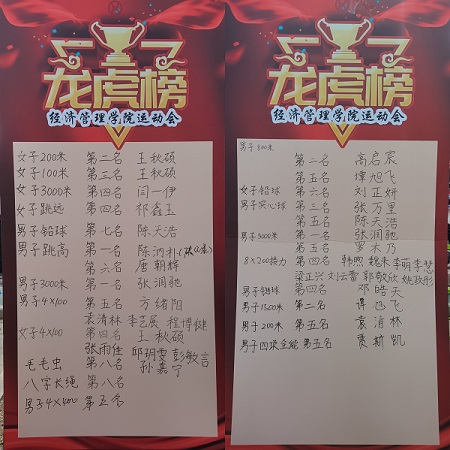 龙虎榜
经济管理学院运动会
女子200米 第二名 王秋硕
女子100米 第三名 王秋硕
女子3000米 第四名 闫一伊
女子跳远 第四名 祁鑫玉
男子铅球 第七名 陈天浩
男子跳高 第一名
第六名 唐朝辉
男子3000米 第一名 张润驰
男子4×100 第五名 方绪阳
袁清林 李艺展 程博健
女子4×100 第四名 王秋硕
张雨任 邱玥雯 彭敏言
毛毛虫 第八名 孙嘉宁
八字长绳 第八名
男子4×400 第五名
龙虎榜
经济管理学院运动会
男子800米
第二名 高启宸
第五名 谭旭飞
女子铅球 第六名 刘正妍
男子实心球 第三名 张万里
第五名 陈天浩
男子5000米 第一名 张润驰
第五名 罗木乃
8×200接力 第四名 韩煦 魏来 李萌 李慧
梁正兴 刘云蕾 郭敬欣 姚政彤
男子铅球 第四名 邓皓天
男子1500米 第二名 谭旭飞
男子200米 第五名 袁清林
男子四项全能 第五名 贾斯凯